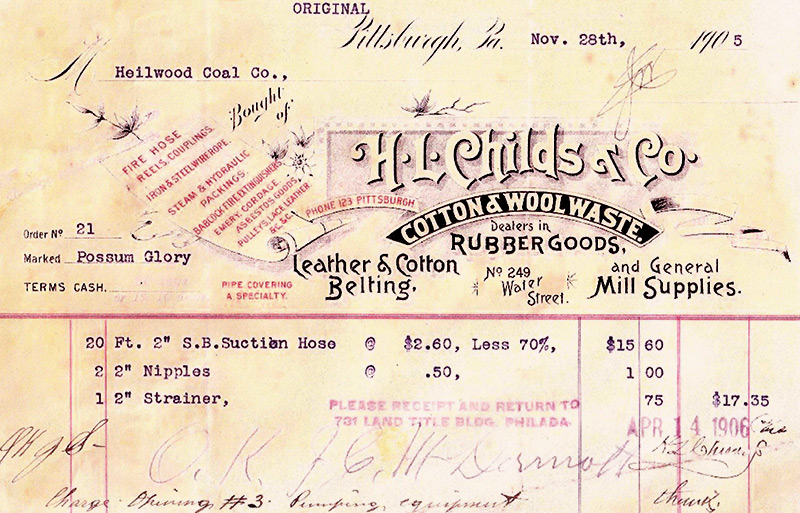 ORIGINAL
Pittsburgh, Pa. Nov. 28th, 1905
M Heilwood Coal Co.,
Bought of
H. L. Childs & Co.
FIRE HOSE
REELS, COUPLINGS,
IRON & STEEL WIRE ROPE,
STEAM & HYDRAULIC
PACKINGS.
BABCOCK FIRE EXTINGUISHERS
EMERY, CORDAGE
ASBESTOS GOODS,
PULLEYS, LACE LEATHER
&C. &C.
PHONE 123 PITTSBURGH
COTTON & WOOL WASTE.
Dealers in
RUBBER GOODS,
Leather & Cotton
Belting,
No 249
Water
Street.
and General
Mill Supplies.
Order No 21
Marked Possum Glory
TERMS CASH.
PIPE COVERING
A SPECIALTY.
20 Ft. 2" S.B.Suction Hose @ $2.60, Less 70%, $15 60
2 2" Nipples @ .50, 1 00
1 2" Strainer, 75 $17.35
PLEASE RECEIPT AND RETURN TO
731 LAND TITLE BLDG. PHILADA.
APR 14 1906
O.K. J C McDermott
Charge Driving #3 Pumping equipment